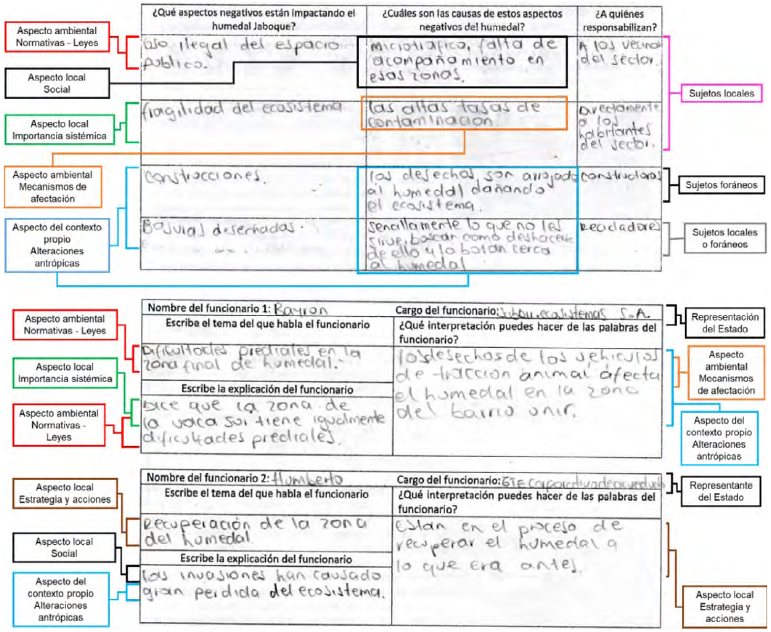 ¿Qué aspectos negativos están impactando el
humedal Jaboque?
¿Cuáles son las causas de estos aspectos
negativos del humedal?
¿A quiénes
responsabilizan?
Aspecto ambiental
Normativas - Leyes
Uso ilegal del espacio
publico.
Microtrafico, falta de
acompañamiento en
esas zonas.
A los vecinos
del sector.
Aspecto local
Social
Sujetos locales
Aspecto local
Importancia sistémica
fragilidad del ecosistema
las altas tasas de
contaminacion.
Directamente
a los
habitantes
del sector.
Aspecto ambiental
Mecanismos de
afectación
construcciones.
los desechos son arrojado
al humedal dañando
el ecosistema.
constructoras
Sujetos foráneos
Aspecto del contexto
propio
Alteraciones
antrópicas
Basuras desechadas.
sencillamente lo que no les
sirve, buscar como deshacerse
de ello y lo botan cerca
al humedal
Recicladores
Sujetos locales
o foráneos
Nombre del funcionario 1: Bayron
Cargo del funcionario: Subdir. ecosistemas S.A.
Representación
del Estado
Aspecto ambiental
Normativas - Leyes
Escribe el tema del que habla el funcionario
¿Qué interpretación puedes hacer de las palabras del
funcionario?
Dificultades prediales en la
zona final de humedal.
los desechos de los vehiculos
de traccion animal afecta
el humedal en la zona
del barrio unir.
Aspecto
ambiental
Mecanismos
de afectación
Aspecto local
Importancia sistémica
Escribe la explicación del funcionario
Aspecto ambiental
Normativas -
Leyes
Dice que la zona de
la vaca sur tiene igualmente
dificultades prediales.
Aspecto del
contexto propio
Alteraciones
antrópicas
Nombre del funcionario 2: Humberto
Cargo del funcionario:
Representante
del Estado
Aspecto local
Estrategia y acciones
Escribe el tema del que habla el funcionario
¿Qué interpretación puedes hacer de las palabras del
funcionario?
Recuperación de la zona
del humedal.
Estan en el proceso de
recuperar el humedal a
lo que era antes.
Aspecto local
Social
Escribe la explicación del funcionario
Aspecto del
contexto propio
Alteraciones
antrópicas
las invasiones han causado
gran perdida del ecosistema.
Aspecto local
Estrategia y
acciones